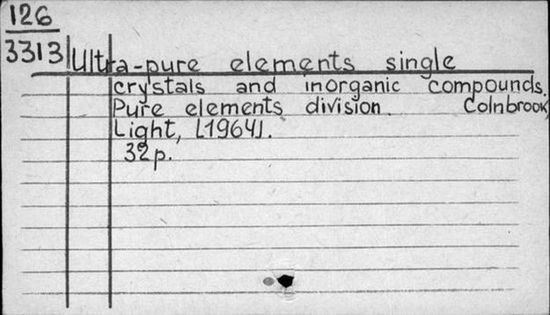 126
3313
Ultra-pure elements single
crystals and inorganic compounds.
Pure elements division. Colnbrook,
Light, [1964].
32 p.